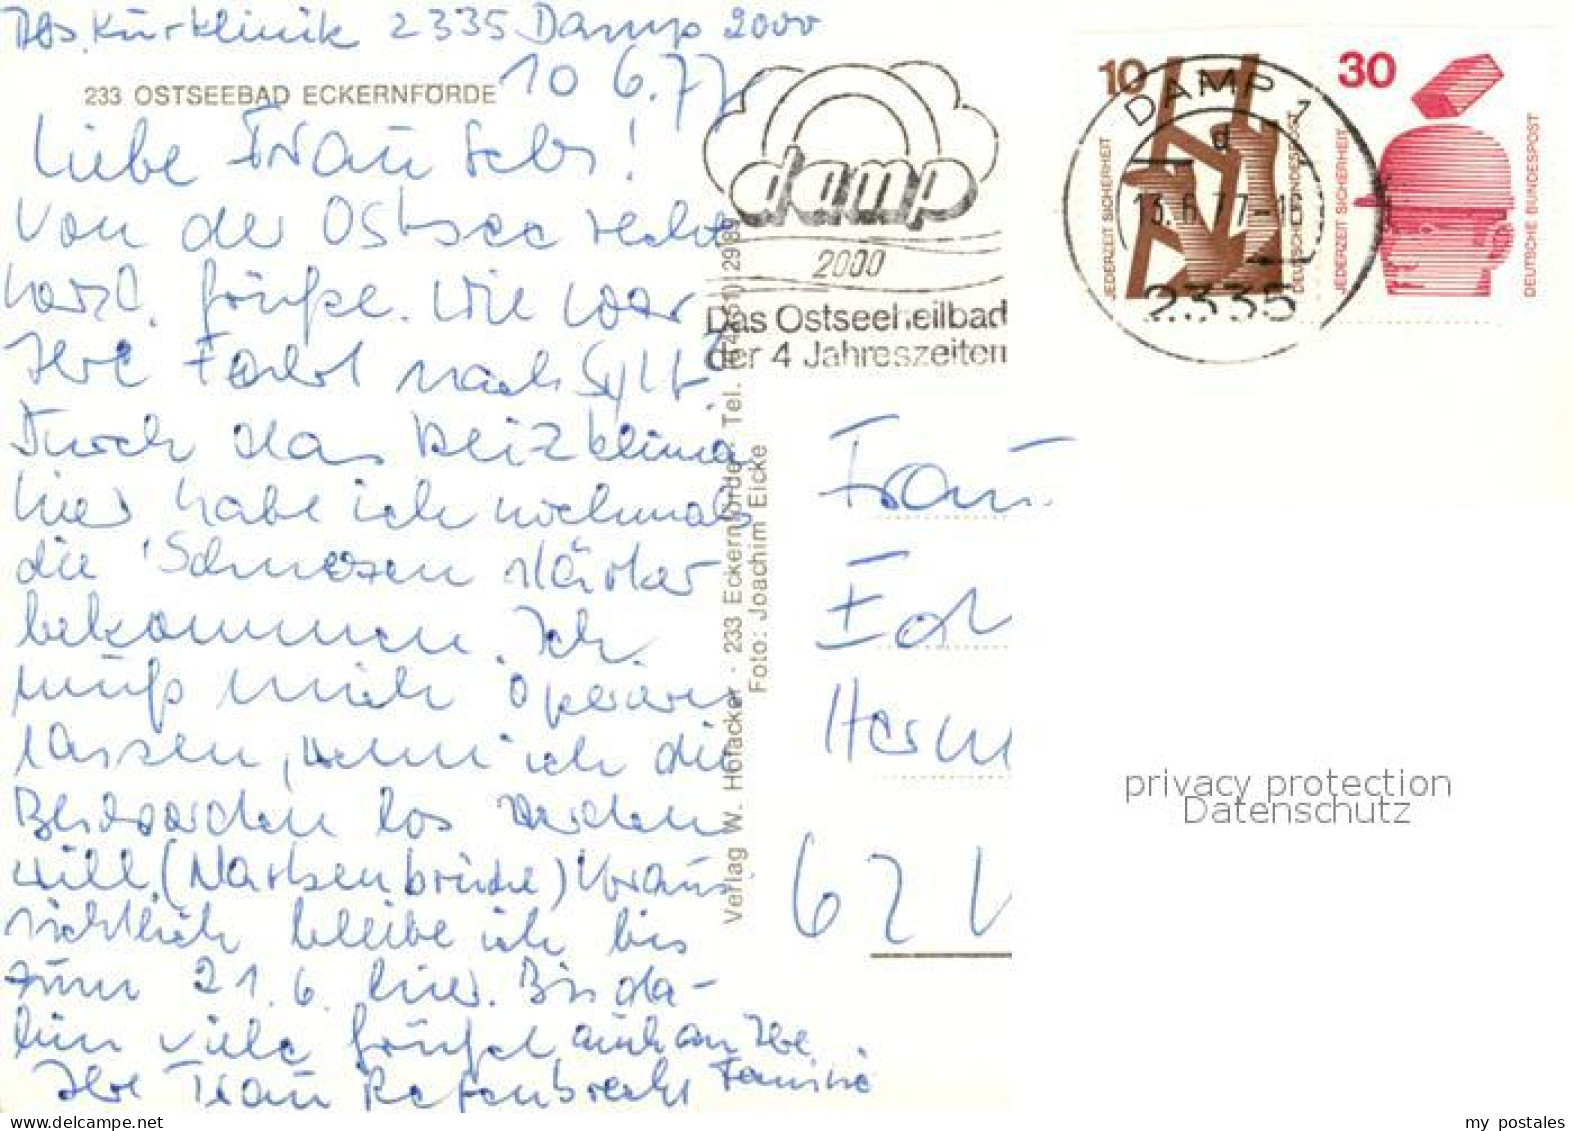 Abs. Kurklinik 2335 Damp 2000
10 6.77
233 OSTSEEBAD ECKERNFÖRDE
Liebe Frau
Von der Ostsee recht
herzl. Grüße. Wie war
Ihre Fahrt nach Sylt.
Durch das Reizklima
hier habe ich nochmals
die Schmerzen stärker
bekommen. Ich
muß mich operieren
lassen, wenn ich die
Beschwerden los werden
will. (Narbenbrüche) Voraus
sichtlich bleibe ich bis
zum 21.6. hier. Bis da-
hin viele Grüße auch an Ihre
Familie
Ihre Frau Refenbrecht
Verlag W. Hofacker · 233 Eckernförde · Tel. (04351) 2989
Foto: Joachim Eicke
damp
2000
Das Ostseeheilbad
der 4 Jahreszeiten
10
JEDERZEIT SICHERHEIT
DEUTSCHE BUNDESPOST
DAMP 1
d
13.6.77-16
2335
30
JEDERZEIT SICHERHEIT
DEUTSCHE BUNDESPOST
Frau
Herm
62
privacy protection
Datenschutz
my postales